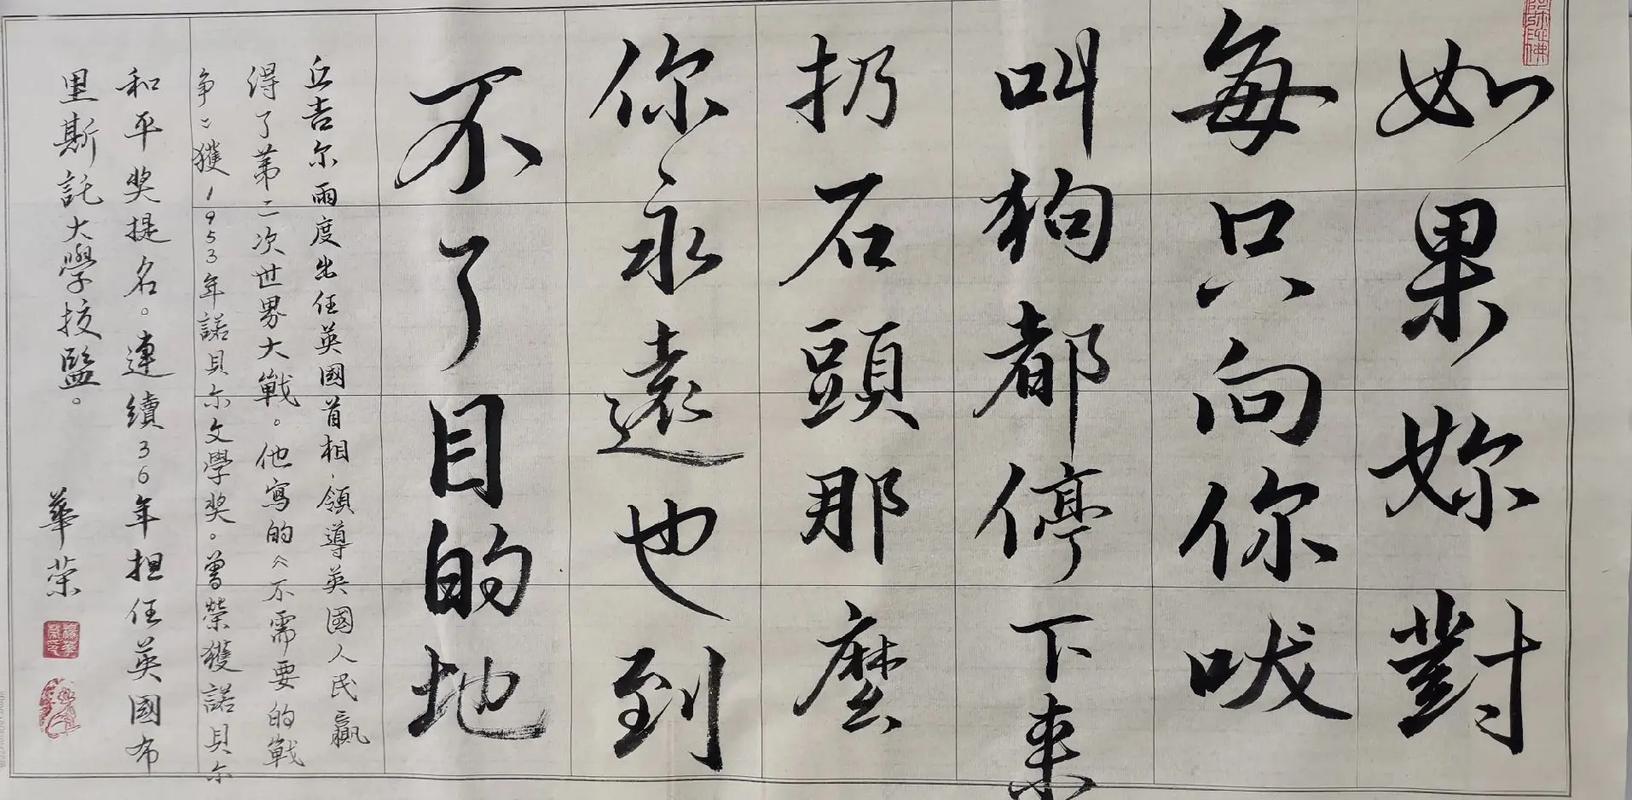 如果妳對
每只向你吠
叫狗都停下来
扔石頭那麼
你永遠也到
不了目的地
丘吉尔兩度出任英國首相,領導英國人民贏
得了第二次世界大戰。他寫的《不需要的戰
争》獲1953年諾貝尔文學奖。曾荣獲諾貝尔
和平奖提名。連續36年担任英國布
里斯託大學校監。
華荣